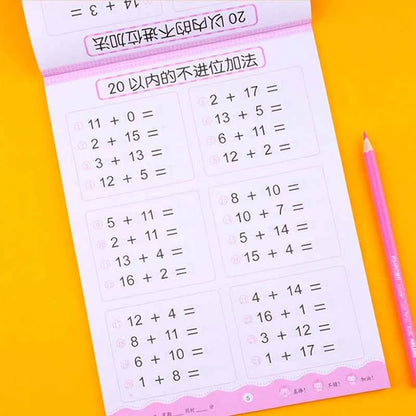 14 + 3 =
20以内的不进位加法
20以内的不进位加法
11 + 0 =
2 + 15 =
3 + 13 =
12 + 5 =
2 + 17 =
13 + 5 =
6 + 11 =
12 + 2 =
5 + 11 =
2 + 11 =
13 + 4 =
16 + 2 =
8 + 10 =
10 + 7 =
5 + 14 =
15 + 4 =
12 + 4 =
8 + 11 =
6 + 10 =
1 + 8 =
4 + 14 =
16 + 1 =
3 + 12 =
1 + 17 =
5